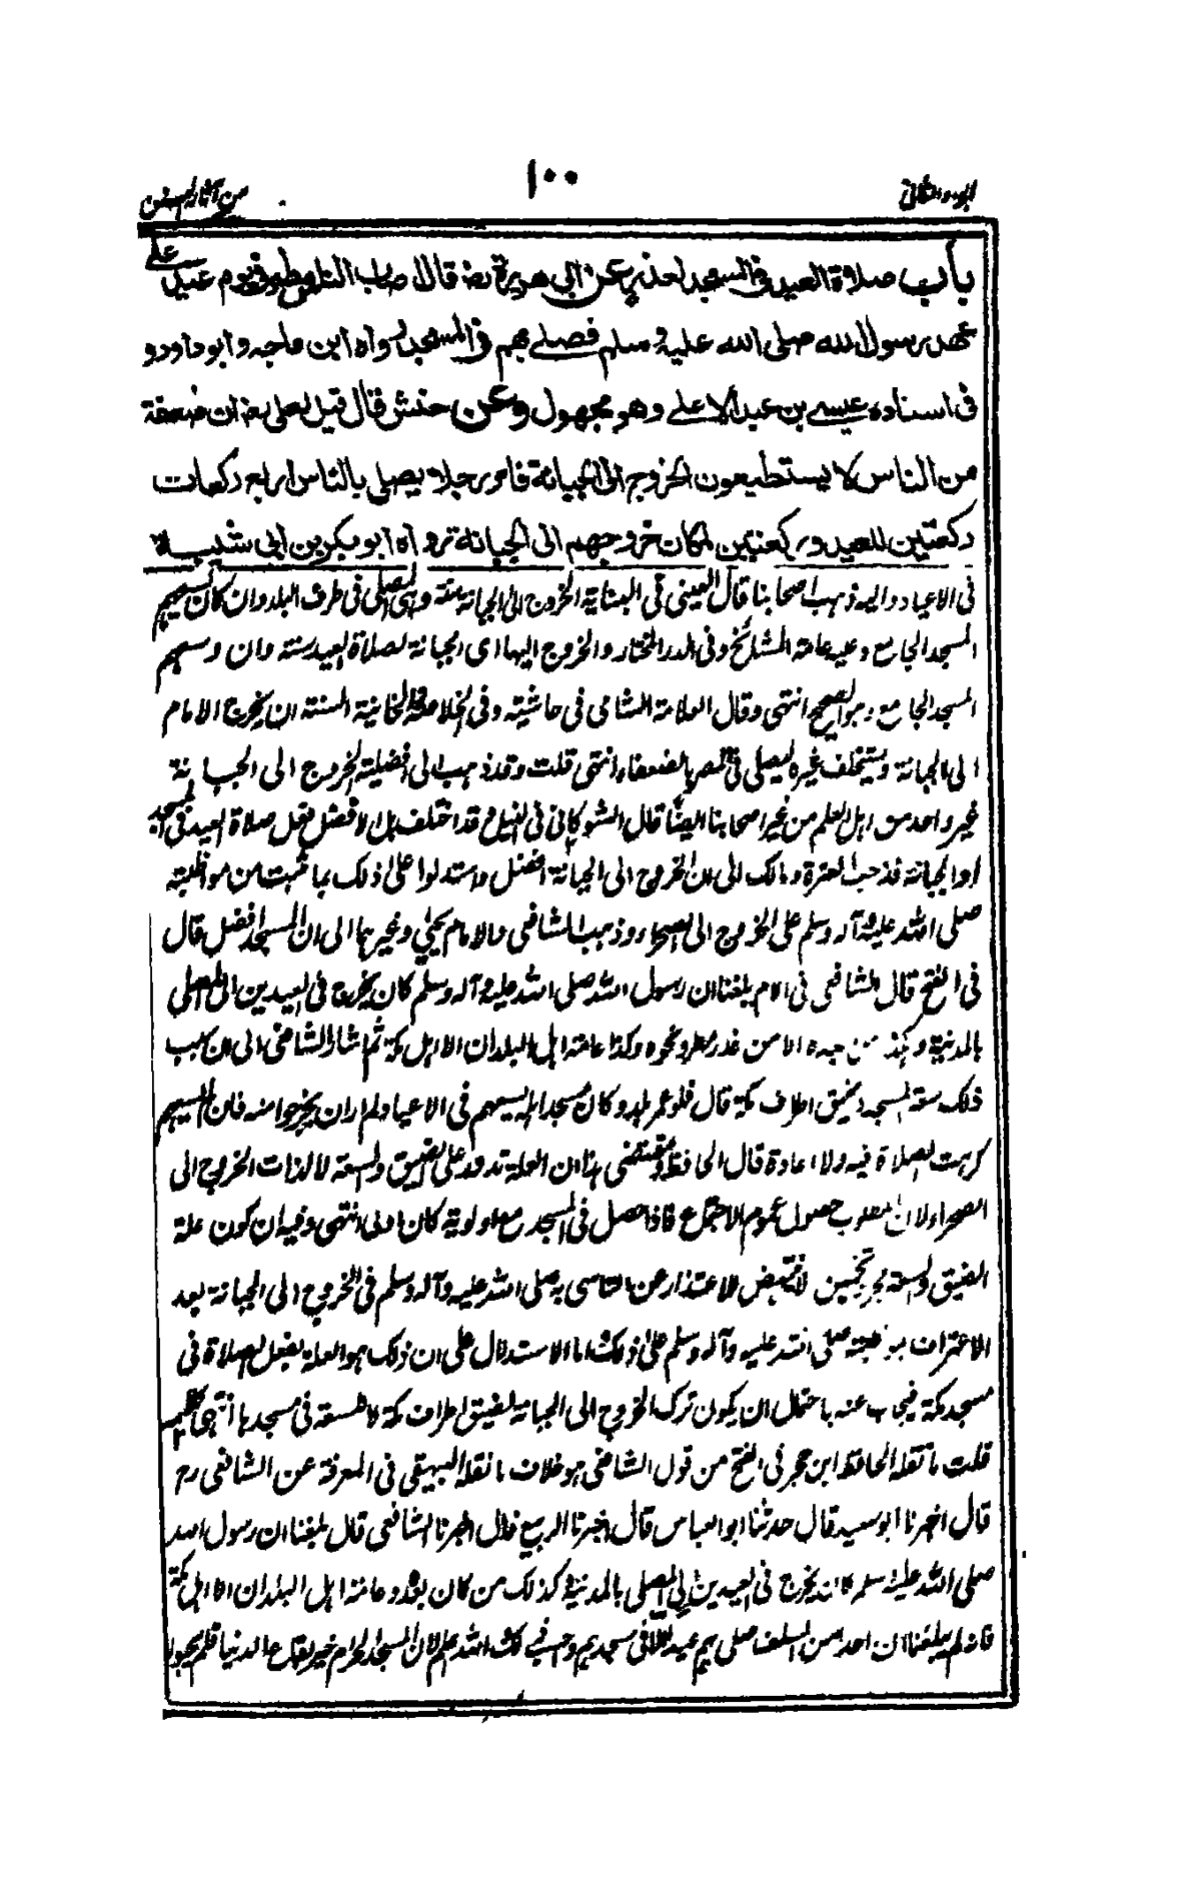 الجزء الثانی
١٠٠
من آثار السنن
باب صلاة العید فی المسجد لعذر عن ابی هریرة رضـ قال اصاب الناس مطر فی یوم عید علی
عهد رسول الله صلی الله علیه وسلم فصلی بهم فی المسجد رواه ابن ماجه وابو داود و
فی اسناده عیسی بن عبد الاعلی وهو مجهول وعن حنش قال قیل لعلی رضـ ان ضعفة
من الناس لا یستطیعون الخروج الی الجبانة فامر رجلا یصلی بالناس اربع رکعات
رکعتین للعید ورکعتین لمکان خروجهم الی الجبانة رواه ابو بکر بن ابی شیبة
فی الاعیاد والیه ذهب اصحابنا قال العینی فی البنایة الخروج الی الجبانة سنة وهی المصلی فی طرف البلد وان کان یسعهم
المسجد الجامع وعلیه عامة المشائخ وفی الدر المختار والخروج الیها ای الجبانة لصلاة العید سنة وان وسعهم
المسجد الجامع وهو الصحیح انتهی وقال العلامة الشامی فی حاشیته وفی الخلاصة والخانیة السنة ان یخرج الامام
الی الجبانة ویستخلف غیره لیصلی فی المصر بالضعفاء انتهی قلت وقد ذهب الی افضلیة الخروج الی الجبانة
غیر واحد من اهل العلم من غیر اصحابنا ایضًا قال الشوکانی فی النیل وقد اختلف هل الافضل فعل صلاة العید فی المسجد
او الجبانة فذهب العترة ومالک الی ان الخروج الی الجبانة افضل واستدلوا علی ذلک بما ثبت من مواظبته
صلی الله علیه وآله وسلم علی الخروج الی الصحراء وذهب الشافعی والامام یحیی وغیرهما الی ان المسجد افضل قال
فی الفتح قال الشافعی فی الام بلغنا ان رسول الله صلی الله علیه وآله وسلم کان یخرج فی العیدین الی المصلی
بالمدینة وهکذا من بعده الا من عذر مطر ونحوه وکذا عامة اهل البلدان الا اهل مکة ثم اشار الشافعی الی ان سبب
ذلک سعة المسجد وضیق اطراف مکة قال فلو عمر بلد وکان مسجد اهله یسعهم فی الاعیاد لم ار ان یخرجوا منه فان لم یسعهم
کرهت الصلاة فیه ولا اعادة قال الحافظ ومقتضی هذا ان العلة تدور علی الضیق والسعة لا لذات الخروج الی
الصحراء لان المطلوب حصول عموم الاجتماع فاذا حصل فی المسجد مع اولویته کان اولی انتهی وفیه ان کون علة
الضیق والسعة مجرد تخمین لا ینتهض للاعتذار عن التاسی به صلی الله علیه وآله وسلم فی الخروج الی الجبانة بعد
الاعتراف بمواظبته صلی الله علیه وآله وسلم علی ذلک واما الاستدلال علی ان ذلک هو العلة بفعل الصلاة فی
مسجد مکة فیجاب عنه باحتمال ان یکون ترک الخروج الی الجبانة لضیق اطراف مکة لا للسعة فی مسجدها انتهی
قلت ما نقله الحافظ ابن حجر فی الفتح من قول الشافعی هو خلاف ما نقله البیهقی فی المعرفة عن الشافعی رح
قال اخبرنا ابو سعید قال حدثنا ابو العباس قال اخبرنا الربیع قال اخبرنا الشافعی قال بلغنا ان رسول الله
صلی الله علیه وسلم کان یخرج فی العیدین الی المصلی بالمدینة وکذلک من کان بعده وعامة اهل البلدان الا اهل مکة
فانه لم یبلغنا ان احدا من السلف صلی بهم عیدا الا فی مسجدهم واحسب ذلک والله اعلم لان المسجد الحرام خیر بقاع الدنیا فلم یحبوا